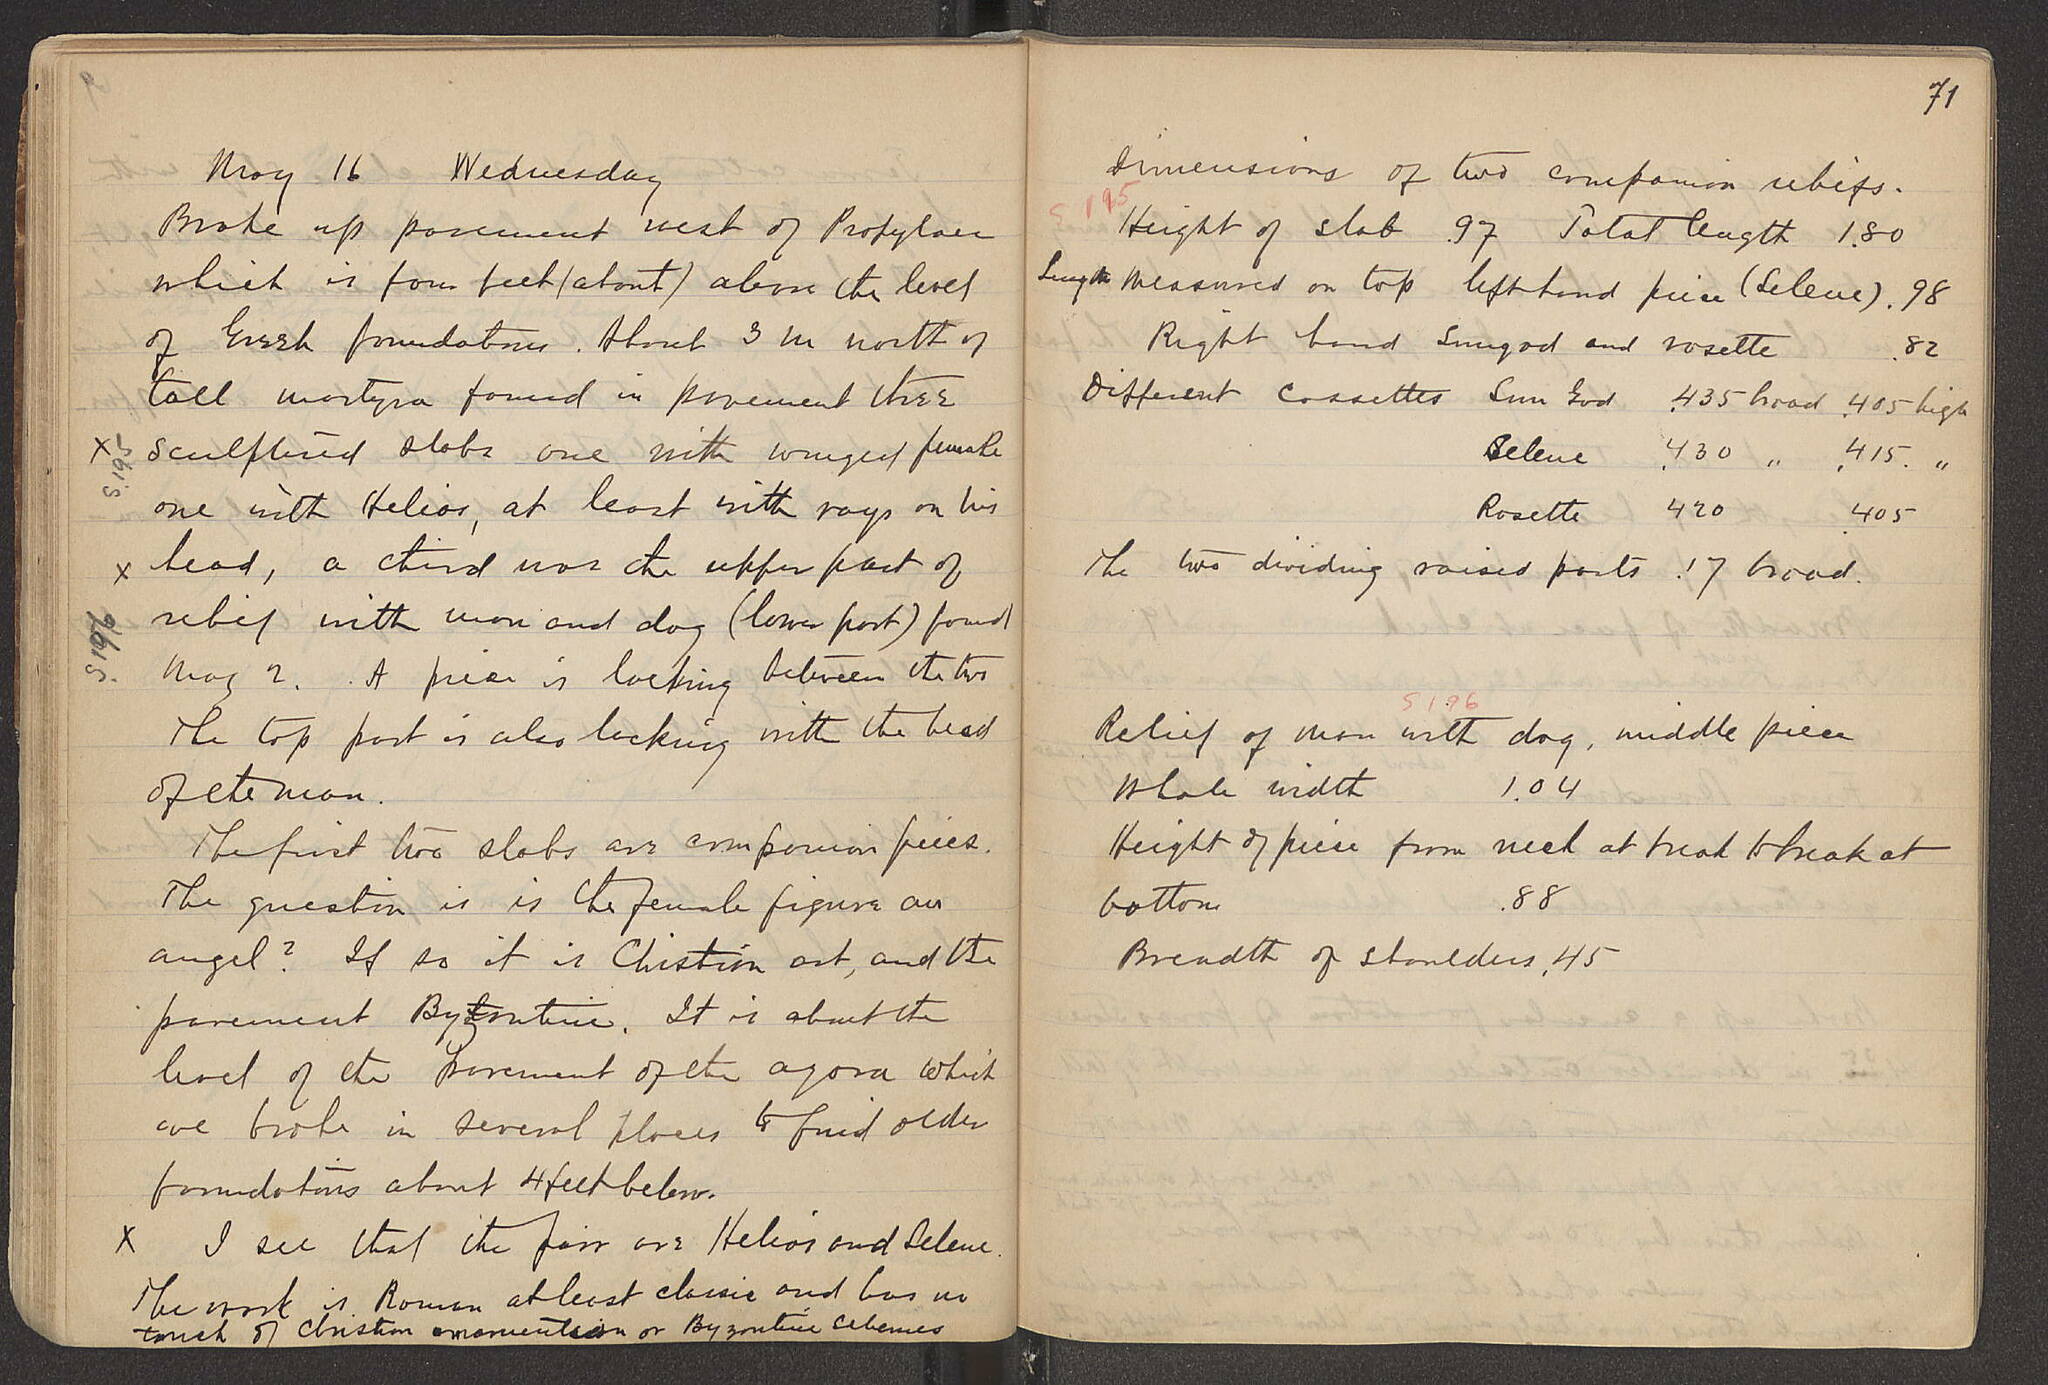 May 16 Wednesday
Broke up pavement west of Propylaea
which is four feet (about) above the level
of Greek foundations. About 3 m north of
tall martyra found in pavement three
x sculptured slabs one with winged female
S 195
one with Helios, at least with rays on his
x head, a third was the upper part of
relief with man and dog (lower part) found
S 196
May 2. A piece is lacking between the two
The top part is also lacking with the head
of the man.
The first two slabs are companion pieces.
The question is is the female figure an
angel? If so it is Chistian art, and the
pavement Byzantine. It is about the
level of the pavement of the agora which
we broke in several places to find older
foundations about 4 feet below.
x I see that the pair are Helios and Selene.
The work is Roman at least classic and has no
touch of Christian ornamentation or Byzantine schemes
71
Dimensions of two companion reliefs.
S 195
Height of slab .97 Total length 1.80
Length measured on top left hand piece (Selene) .98
Right hand Sungod and rosette .82
Different Cassettes Sun God .435 broad .405 high
Selene .430 " .415 "
Rosette 420 .405
The two dividing raised parts .17 broad.
S 196
Relief of man with dog, middle piece
Whole width 1.04
Height of piece from neck at break to break at
bottom .88
Breadth of shoulders .45